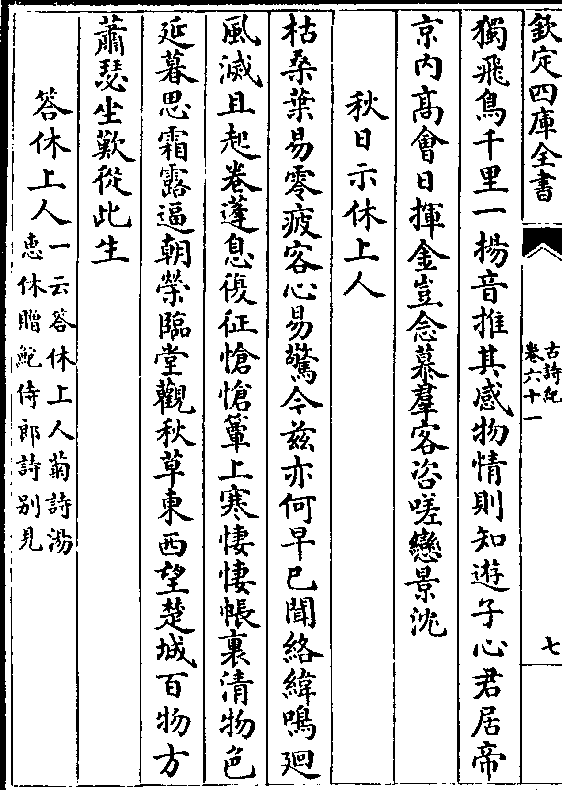 欽定四庫全書
古詩紀
卷六十一
七
獨飛鳥千里一揚音推其感物情則知遊子心君居帝
京内高會日揮金豈念慕羣客咨嗟戀景沈
秋日示休上人
枯桑葉易零疲客心易驚今兹亦何早已聞絡緯鳴迴
風滅且起卷蓬息復征愴愴簟上寒悽悽帳裏清物色
延暮思霜露逼朝榮臨堂觀秋草東西望楚城百物方
蕭瑟坐歎從此生
答休上人一云答休上人菊詩湯
惠休贈鮑侍郎詩别見